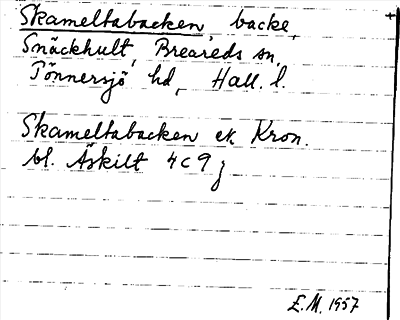 Skameltabacken, backe,
Snäckhult, Breareds sn,
Tönnersjö hd, Hall. l.
Skameltabacken ek. Kron.
bl. Äskilt 4c9j
E.M. 1957